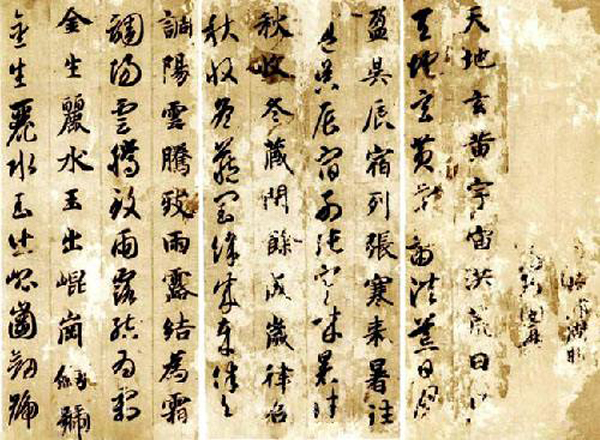 天地玄黄宇宙洪荒日
天地玄黄宇宙洪荒日月
盈昃辰宿列張寒来暑往
盈昃辰宿列張寒来暑往
秋收冬藏閏餘成歲律召
秋收冬藏閏餘成歲律召
調陽雲騰致雨露結為霜
調陽雲騰致雨露結為霜
金生麗水玉出崐崗劒號
金生麗水玉出崐崗劒號